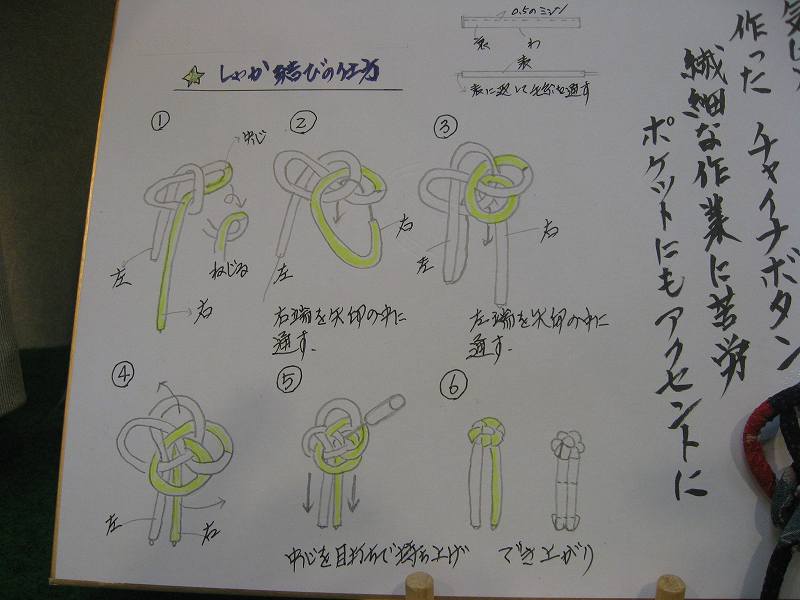 0.5のミシン
表
わ
表
表に返して毛糸を通す
しゃか結びの仕方
①
中心
ねじる
左
右
②
右
左
右端を矢印の中に
通す.
③
右
左
左端を矢印の中に
通す.
④
左
右
⑤
中心を目打ちで持ち上げ
⑥
でき上がり
作った チャイナボタン
繊細な作業に苦労
ポケットにもアクセントに